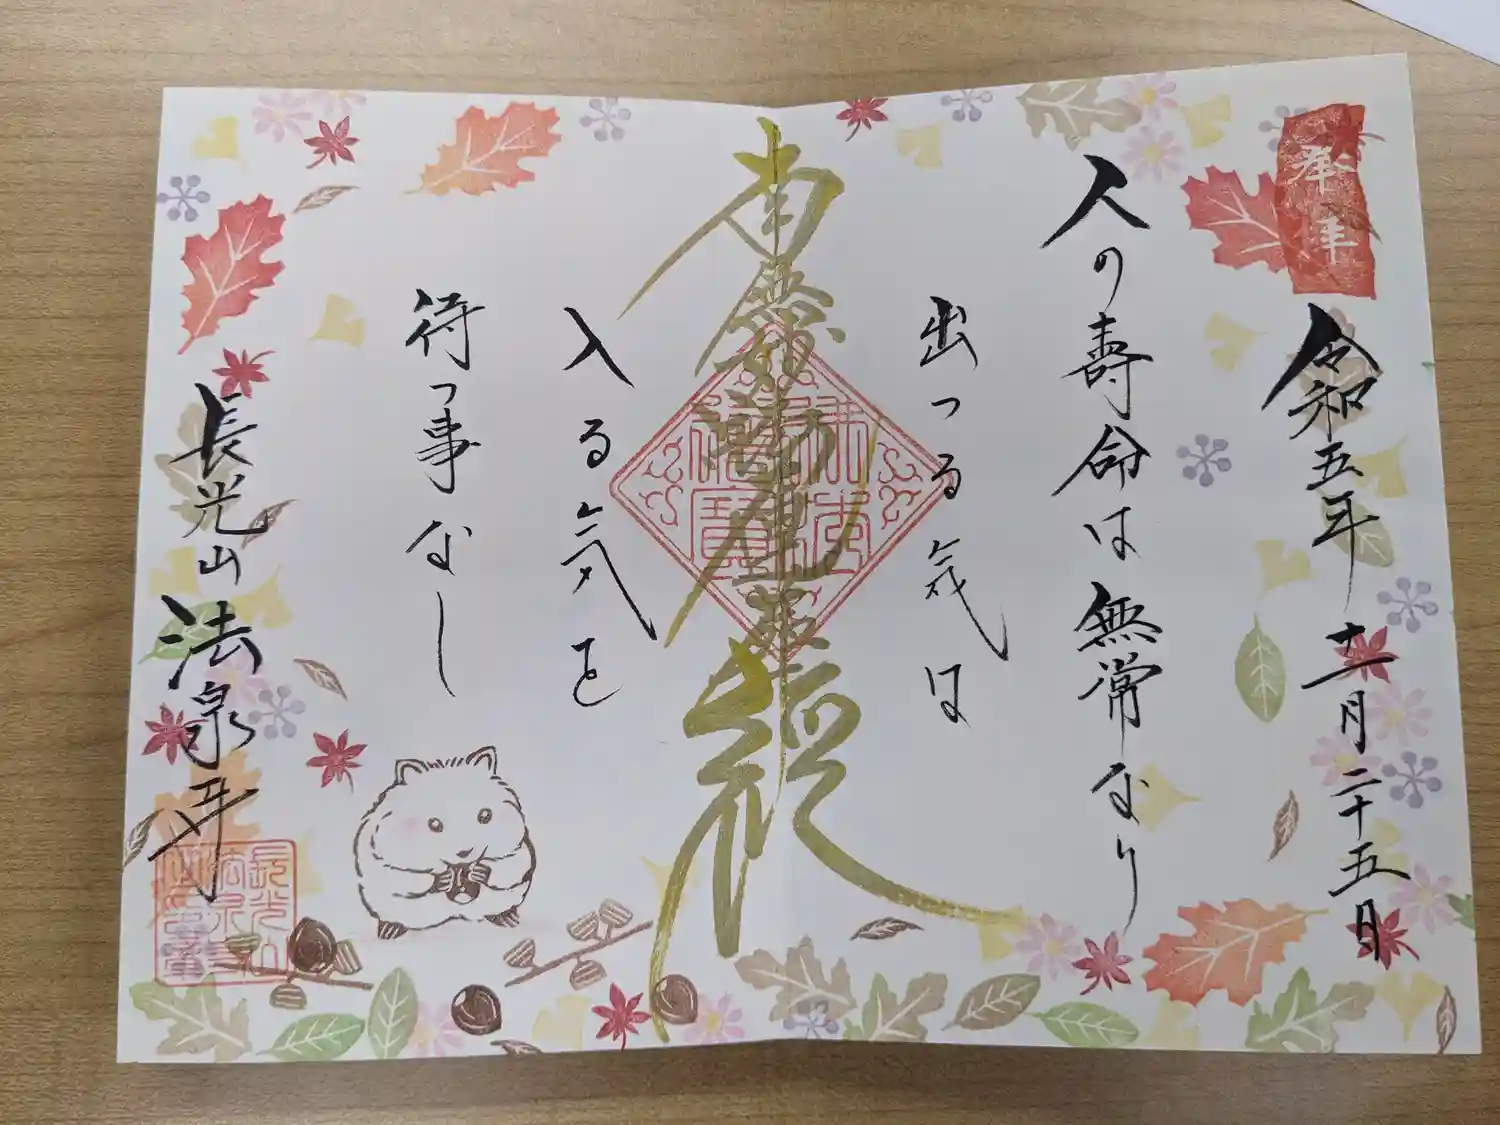 奉拝
令和五年十一月二十五日
人の壽命は無常なり
出つる気は
南無妙法蓮華經
佛法僧寶
入る気を
待つ事なし
長光山 法泉寺